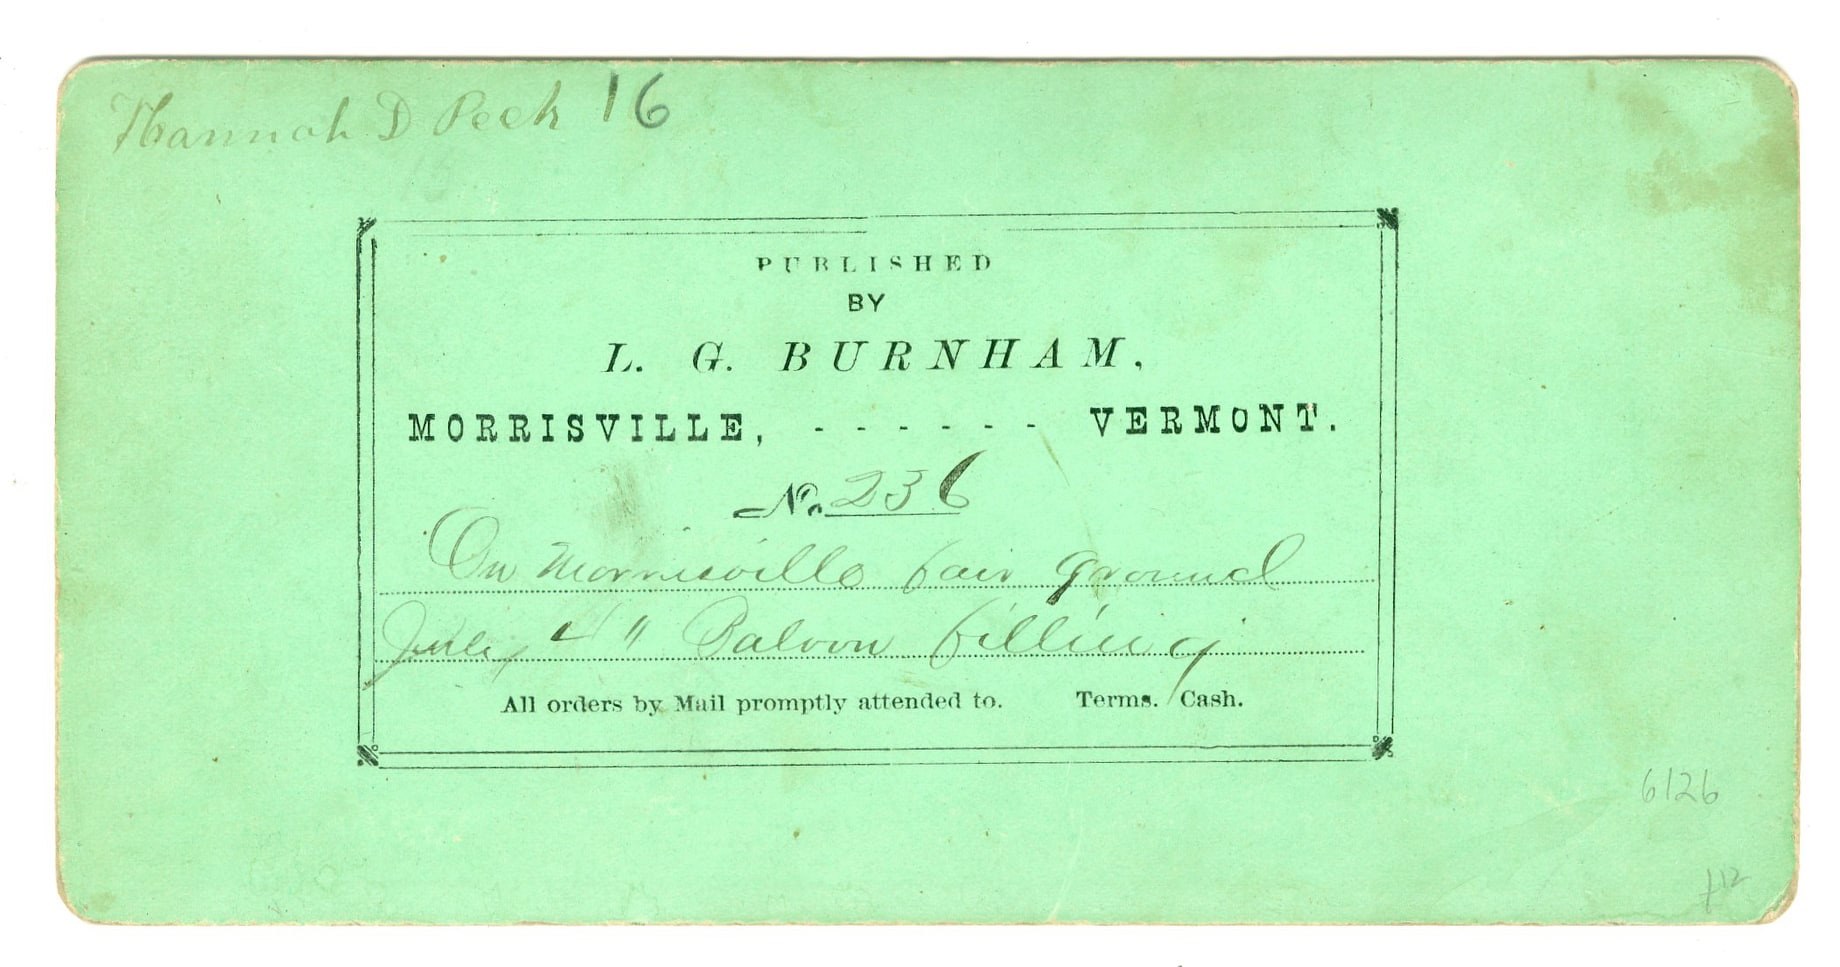 Hannah D Peck 16
PUBLISHED
BY
L. G. BURNHAM,
MORRISVILLE, - - - - - - VERMONT.
No. 236
On Morrisville fair ground
July 4" Baloon filling
All orders by Mail promptly attended to. Terms. Cash.
6126